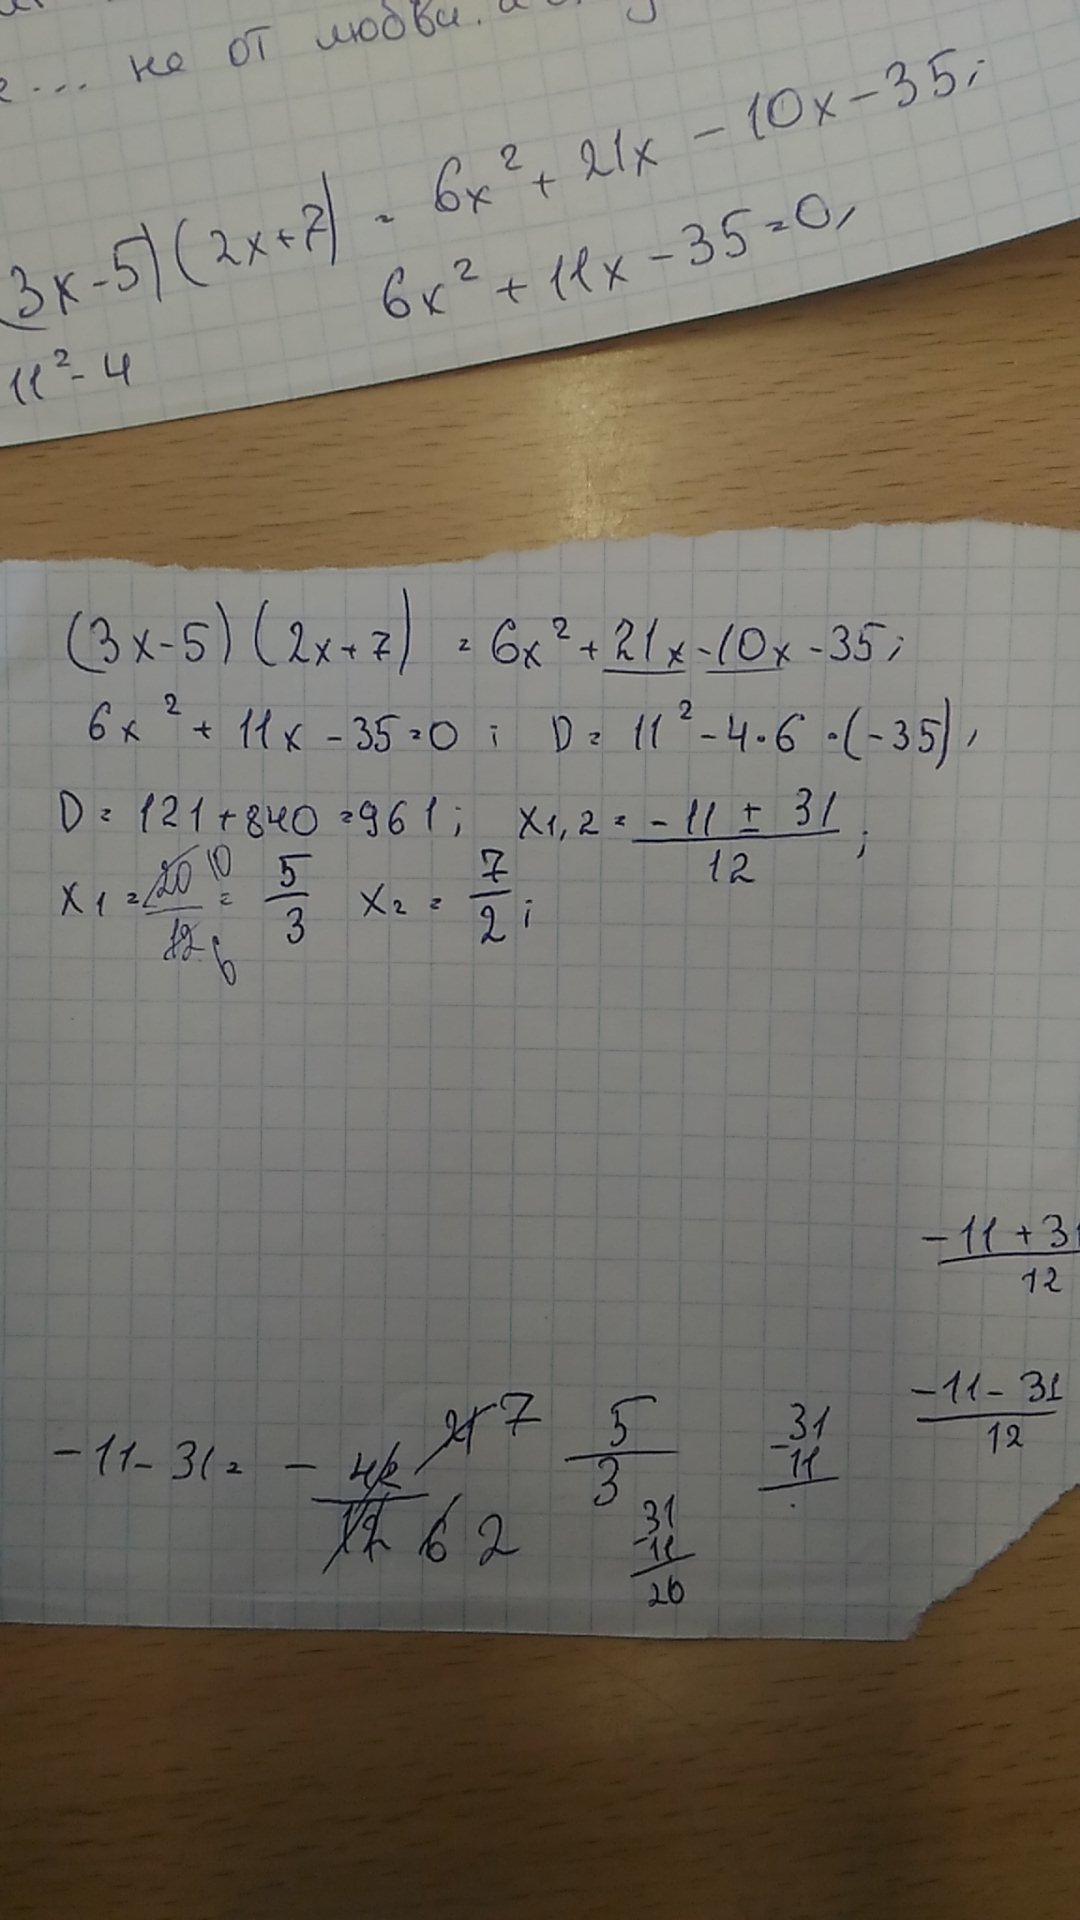 не от любви.
(3x-5)(2x+7) = 6x² + 21x - 10x - 35;
6x² + 11x - 35 = 0,
11² - 4
(3x-5)(2x+7) = 6x² + 21x - 10x - 35;
6x² + 11x - 35 = 0; D = 11² - 4·6·(-35),
D = 121 + 840 = 961; x1,2 = (-11 ± 31)/12;
x1 = 20/12 10/6 = 5/3 x2 = 7/2;
-11+31/12
-11-31/12
-11-31 = -42/12 21/6 7/2 5/3 31-11
31-11 20